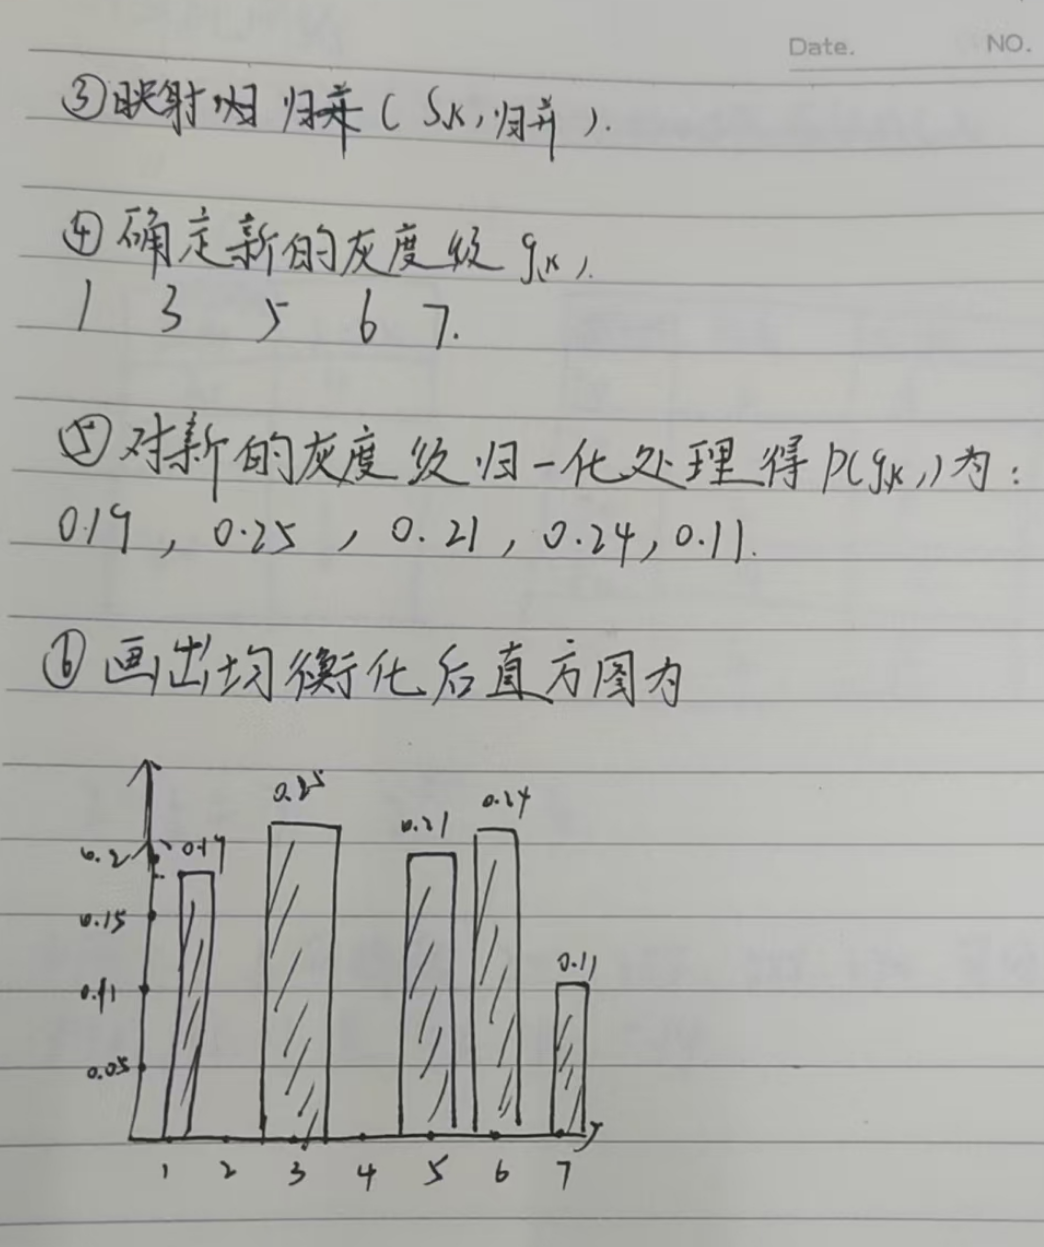 Date. NO.
③映射归 归并（Sk,归并）.
④确定新的灰度级 g(k).
1 3 5 6 7.
⑤对新的灰度级归一化处理得P(gk)为：
0.19, 0.25, 0.21, 0.24, 0.11.
⑥画出均衡化后直方图为
0.25 0.24
0.21
0.2 0.19
0.15
0.11
0.05
1 2 3 4 5 6 7